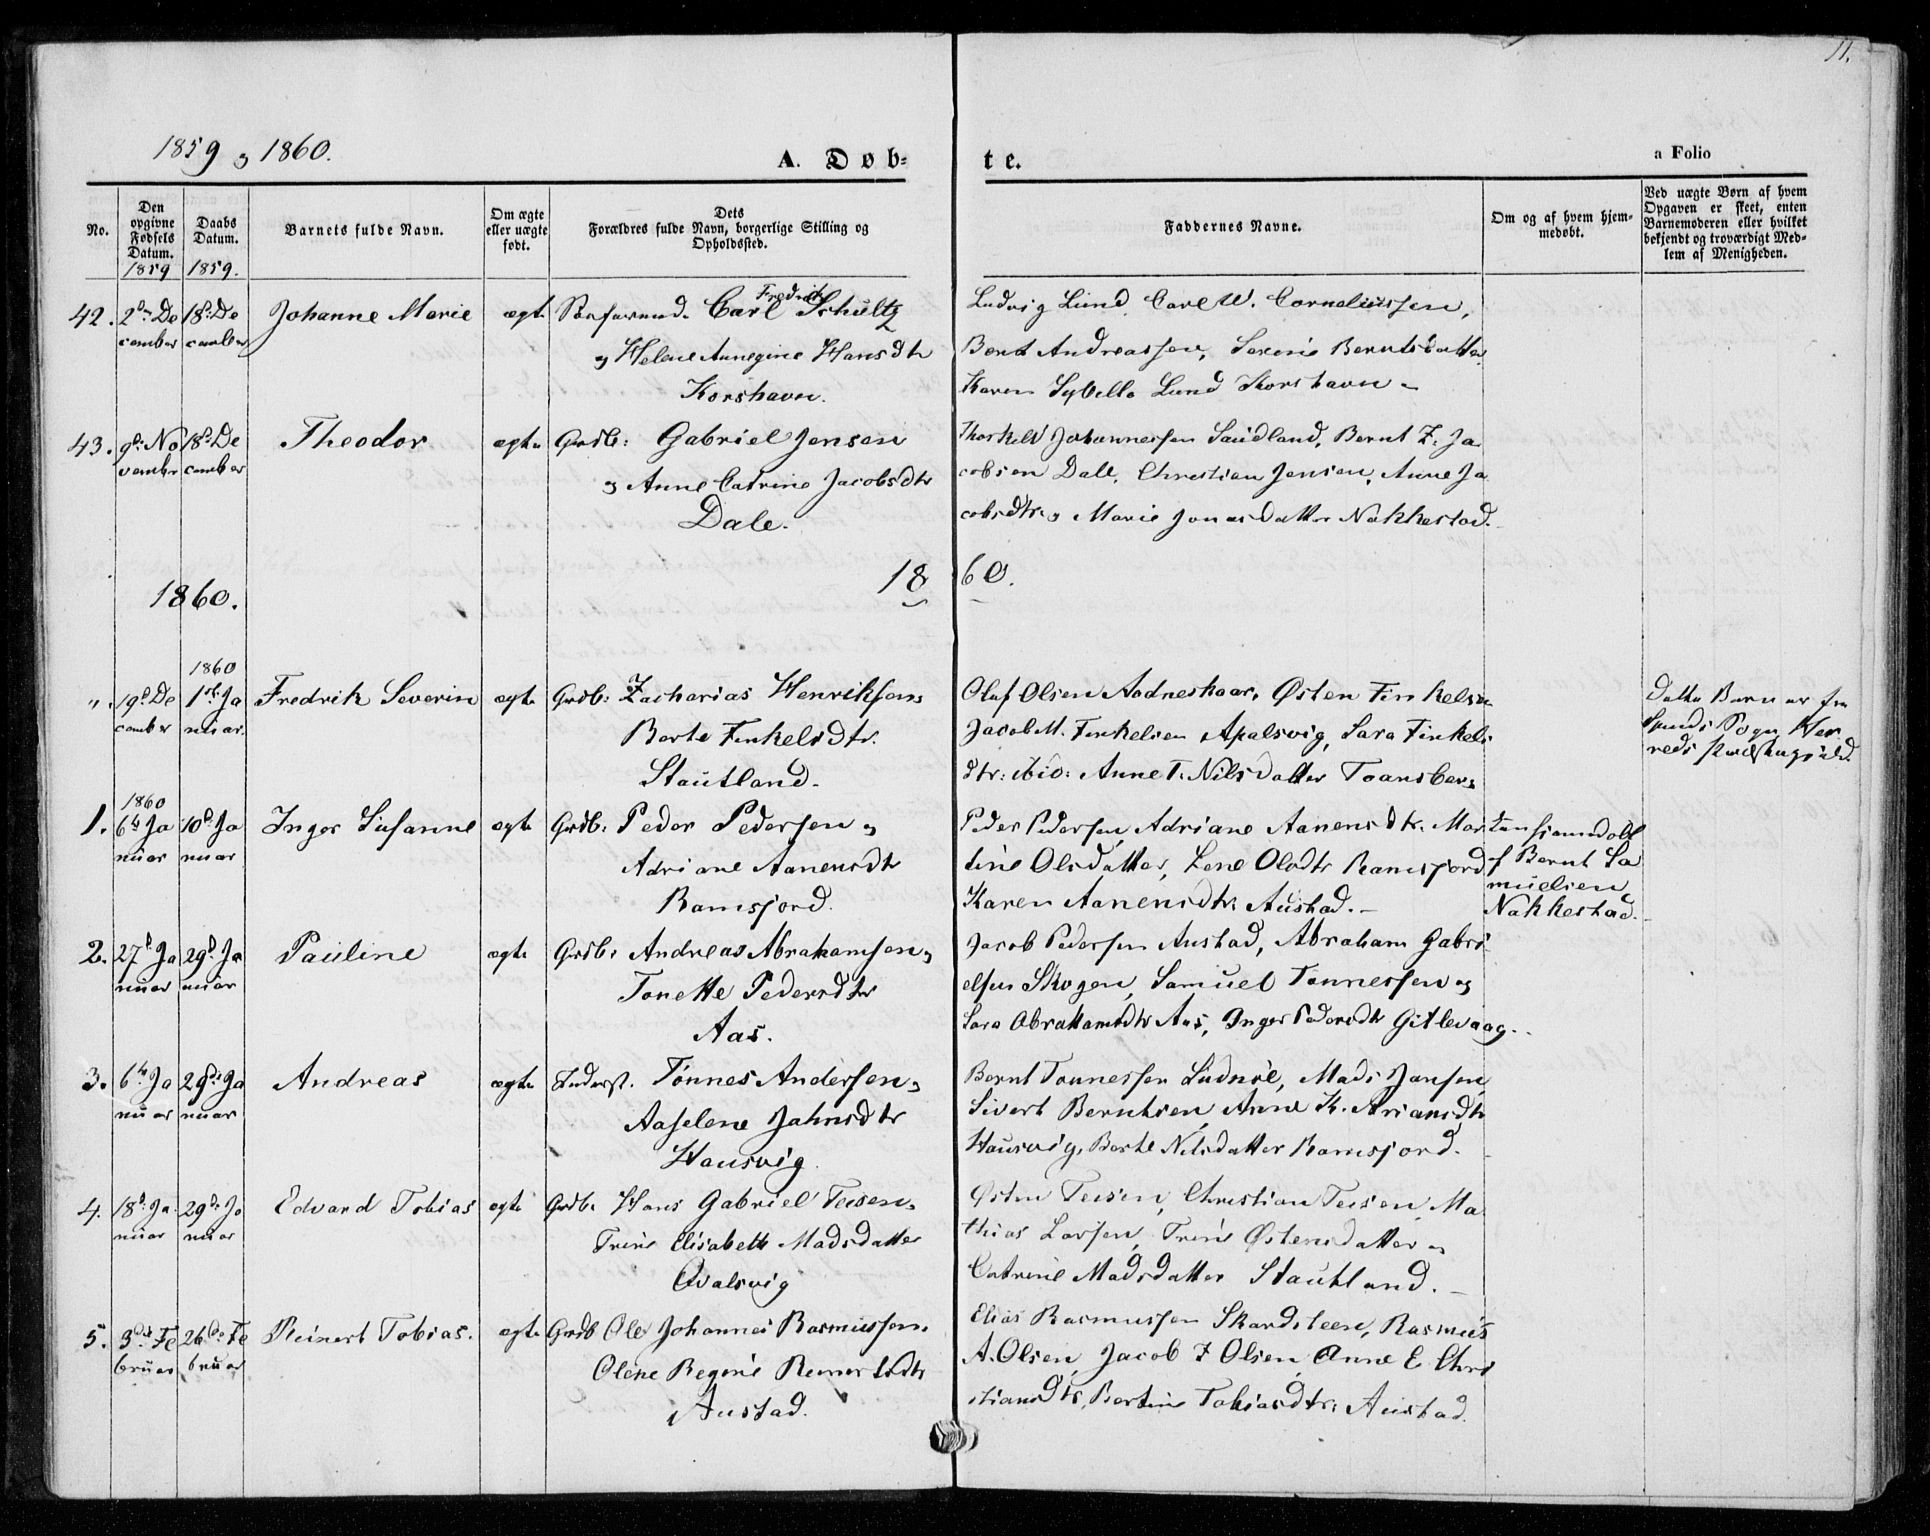 11.
1859 og 1860.
A. Døb-
te.
a Folio
No.
Den opgivne Fødsels Datum.
1859
Daabs Datum.
1859.
Barnets fulde Navn.
Om ægte eller uægte født.
Dets
Forældres fulde Navn, borgerlige Stilling og
Opholdssted.
Faddernes Navne.
Om og af hvem hjem-
medøbt.
Ved uægte Børn af hvem
Opgaven er skeet, enten
Barnemoderen eller hvilket
bekjendt og troværdigt Med-
lem af Menigheden.
42. 2den De 18de De Johanne Marie ægte Carl Fredrik Schultz
cember cember og Helene Annegine Hansdtr
Korshavn.
Ludvig Lund, Carl W. Corneliussen,
Bernt Andreassen, Serine Berntsdatter
Karen Sybille Lund Korshavn
43. 9de No 18de De Theodor ægte Grdb: Gabriel Jensen
vember cember og Anne Catrine Jacobsdtr
Dale.
Thorkild Johannessen Saudland, Bernt Z. Ja
cobsen Dale, Christian Jensen, Anne Ja
cobsdtr og Marie Jonasdatter Nakkestad.
1860.
1860.
1860
" 19de De 1ste Ja Fredrik Severin ægte Grdb: Zacharias Henriksen og
cember nuar Berte Finkelsdtr.
Stautland.
Oluf Olsen Aadneskaar, Østen Finkelsen
Jacob M. Finkelsen Apalsvig, Sara Finkels
dtr: ibid: Anne T. Nilsdatter
Dette Barn er fra
Spinds Sogn Her
reds Præstegjeld.
1860
1. 6te Ja 10de Ja Inger Susanne ægte Grdb: Peder Pedersen og
nuar nuar Adriane Aanensdtr
Ramsfjord.
Peder Pedersen, Adriane Aanensdtr. Mar
tine Olsdatter, Lene Olsdtr Ramsfjord
Karen Aanensdtr: Austad.
hjemmedøbt
af Bernt Sa
muelsen
Nakkestad.
2. 27de Ja 29de Ja Pauline ægte Grdb: Andreas Abrahamsen og
nuar nuar Tonette Pedersdtr
Aas.
Jacob Pedersen Austad, Abraham Gabri
elsen Skogen, Samuel Tønnessen og
Sara Abrahamsdtr Aas, Inger Pedersdtr Gitlevaag.
3. 6te Ja 29de Ja Andreas ægte Inderst. Tønnes Andersen og
nuar nuar Aaselene Jahnsdtr
Hausvig.
Bernt Tønnessen Mads Jansen,
Sivert Berntsen, Anne K. Ariansdtr
Hausvig, Berte Nilsdatter Ramsfjord.
4. 18de Ja 29de Ja Edvard Tobias ægte Grdb. Hans Gabriel Teisen og
nuar nuar Trine Elisabeth Madsdatter
Qvalsvig
Østen Teisen, Christian Teisen, Ma
thias Larsen, Trine Østensdatter og
Catrine Madsdatter Stautland.
5. 3die Fe 26de Fe Reinert Tobias. ægte Grdb Ole Johannes Rasmussen og
bruar bruar Olene Regine Reinertsdtr
Austad.
Elias Rasmussen Skardsteen, Rasmus
A. Olsen, Jacob T Olsen, Anne E Chri
stiansdtr, Bertine Tobiasdtr: Austad.